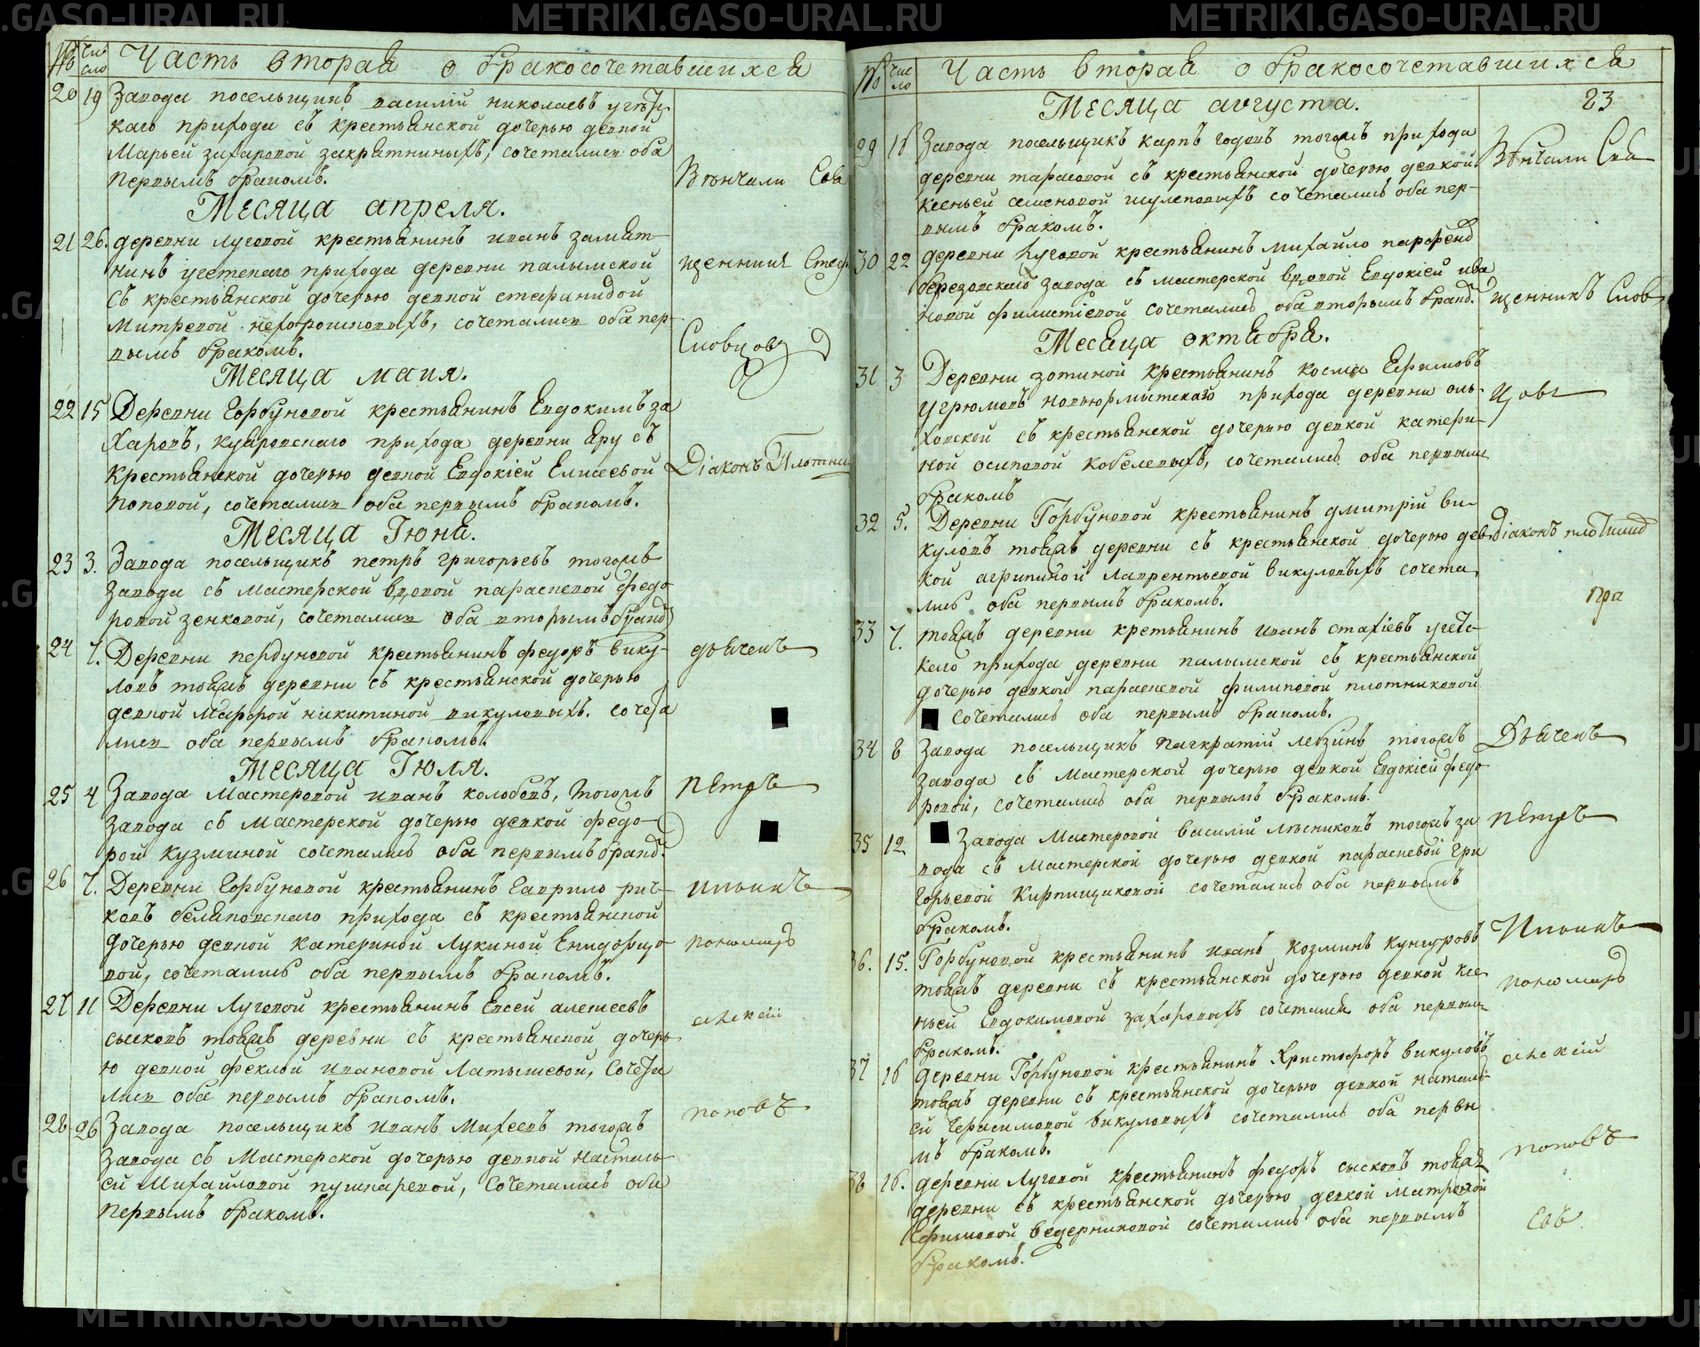 METRIKI.GASO-URAL.RU
METRIKI.GASO-URAL.RU
№ Число Часть вторая о бракосочетавшихся
20 19 Завода посельщикъ василій николаевъ
каго прихода съ крестьянской дочерью девкой
Марьей захаровой сочетались оба
первымъ бракомъ.
Месяца апреля.
21 26. деревни луговой крестьянинъ иванъ замят
нинъ прихода деревни палымской
съ крестьянской дочерью девкой стефанидой
Митревой сочетались оба пер-
вымъ бракомъ.
Месяца маия.
22 15 Деревни Горбуновой крестьянинъ Евдокимъ за
харовъ, прихода деревни яру съ
крестьянской дочерью девкой Евдокіей Елисеевой
поповой, сочетались оба первымъ бракомъ.
Месяца Іюня.
23 3. Завода посельщикъ петръ григорьевъ тогожъ
завода съ мастерской вдовой параскевой федо
ровой зенковой, сочетались оба вторымъ бракомъ
24 7. Деревни крестьянинъ федоръ вику-
ловъ тояжъ деревни съ крестьянской дочерью
девкой Марфой никитиной викуловыхъ. сочета
лись оба первымъ бракомъ.
Месяца Іюля.
25 4 Завода Мастеровой иванъ колобовъ, тогожъ
завода съ мастерской дочерью девкой федо-
рой кузминой сочетались оба первымъ браком.
26 7. Деревни Горбуновой крестьянинъ Гаврило рич-
ковъ прихода съ крестьянской
дочерью девкой катериной Лукиной
вой, сочетались оба первымъ бракомъ.
27 11 Деревни Луговой крестьянинъ Евсей алексеевъ
сысковъ тояжъ деревни съ крестьянской дочерь
ю девкой феклой ивановой Латышевой, сочета
лись оба первымъ бракомъ.
28 26 Завода посельщикъ иванъ Михеевъ тогожъ
завода съ Мастерской дочерью девкой насталь
ей Михаиловой пушкаревой, сочетались оба
первымъ бракомъ.
Венчали Свя
щенникъ Стеф
Словцовъ
Діаконъ Плотни
дьячекъ
Петръ
Ильинъ
пономарь
алексій
поповъ
№ Число Часть вторая о бракосочетавшихся
23
Месяца августа.
29 18 Завода посельщикъ карпъ годовъ тогожъ прихода
деревни тарасовой съ крестьянской дочерью девкой
ксеньей семеновой шулеповыхъ сочетались оба пер-
вымъ бракомъ.
30 22 деревни луговой крестьянинъ михайло парфенов
березовскаго завода съ мастерской вдовой Евдокіей ива
новой сочетались оба вторымъ браком.
Месяца октября.
31 3 Деревни зотиной крестьянинъ косма Ефимовъ
угрюмовъ прихода деревни оль-
ховской съ крестьянской дочерью девкой катери-
ной осиповой кобелевыхъ, сочетались оба первымъ
бракомъ
32 5. Деревни Горбуновой крестьянинъ дмитрій ви-
куловъ тояжъ деревни съ крестьянской дочерью дев
кой агрипиной лаврентьевой викуловыхъ сочета
лись оба первымъ бракомъ.
33 7. тояжъ деревни кретьянинъ иванъ стахіевъ
каго прихода деревни палымской съ крестьянской
дочерью девкой параскевой филиповой плотниковой
сочетались оба первымъ бракомъ.
34 8 Завода посельщикъ панкратій лебзинъ тогожъ
завода съ Мастерской дочерью девкой Евдокіей федо
ровой, сочетались оба первымъ бракомъ.
35 12 Завода Мастеровой василій лесниковъ тогожъ за
вода съ мастерской дочерью девкой параскевой гри
горьевой Кирпищиковой сочетались оба первымъ
бракомъ.
36. 15. Горбуновой крестьянинъ иванъ козминъ кунгуровъ
тояжъ деревни съ крестьянской дочерью девкой ксе
ньей Евдокимовой захаровыхъ сочетались оба первымъ
бракомъ.
37 16 деревни Горбуновой крестьянинъ Христофоръ викуловъ
тояжъ деревни съ крестьянской дочерью девкой наталь-
ей Герасимовой викуловыхъ сочетались оба первы
мъ бракомъ.
38 16. деревни Луговой крестьянинъ федоръ сысковъ тояжъ
деревни съ крестьянской дочерью девкой матреной
Ефимовой ведерниковой сочетались оба первымъ
бракомъ.
Венчали Свя
щенникъ Слов
цовъ
Діаконъ плотник
Дьячекъ
Петръ
Ильинъ
пономарь
алексій
поповъ
METRIKI.GASO-URAL.RU
METRIKI.GASO-URAL.RU
METRIKI.GASO-URAL.RU